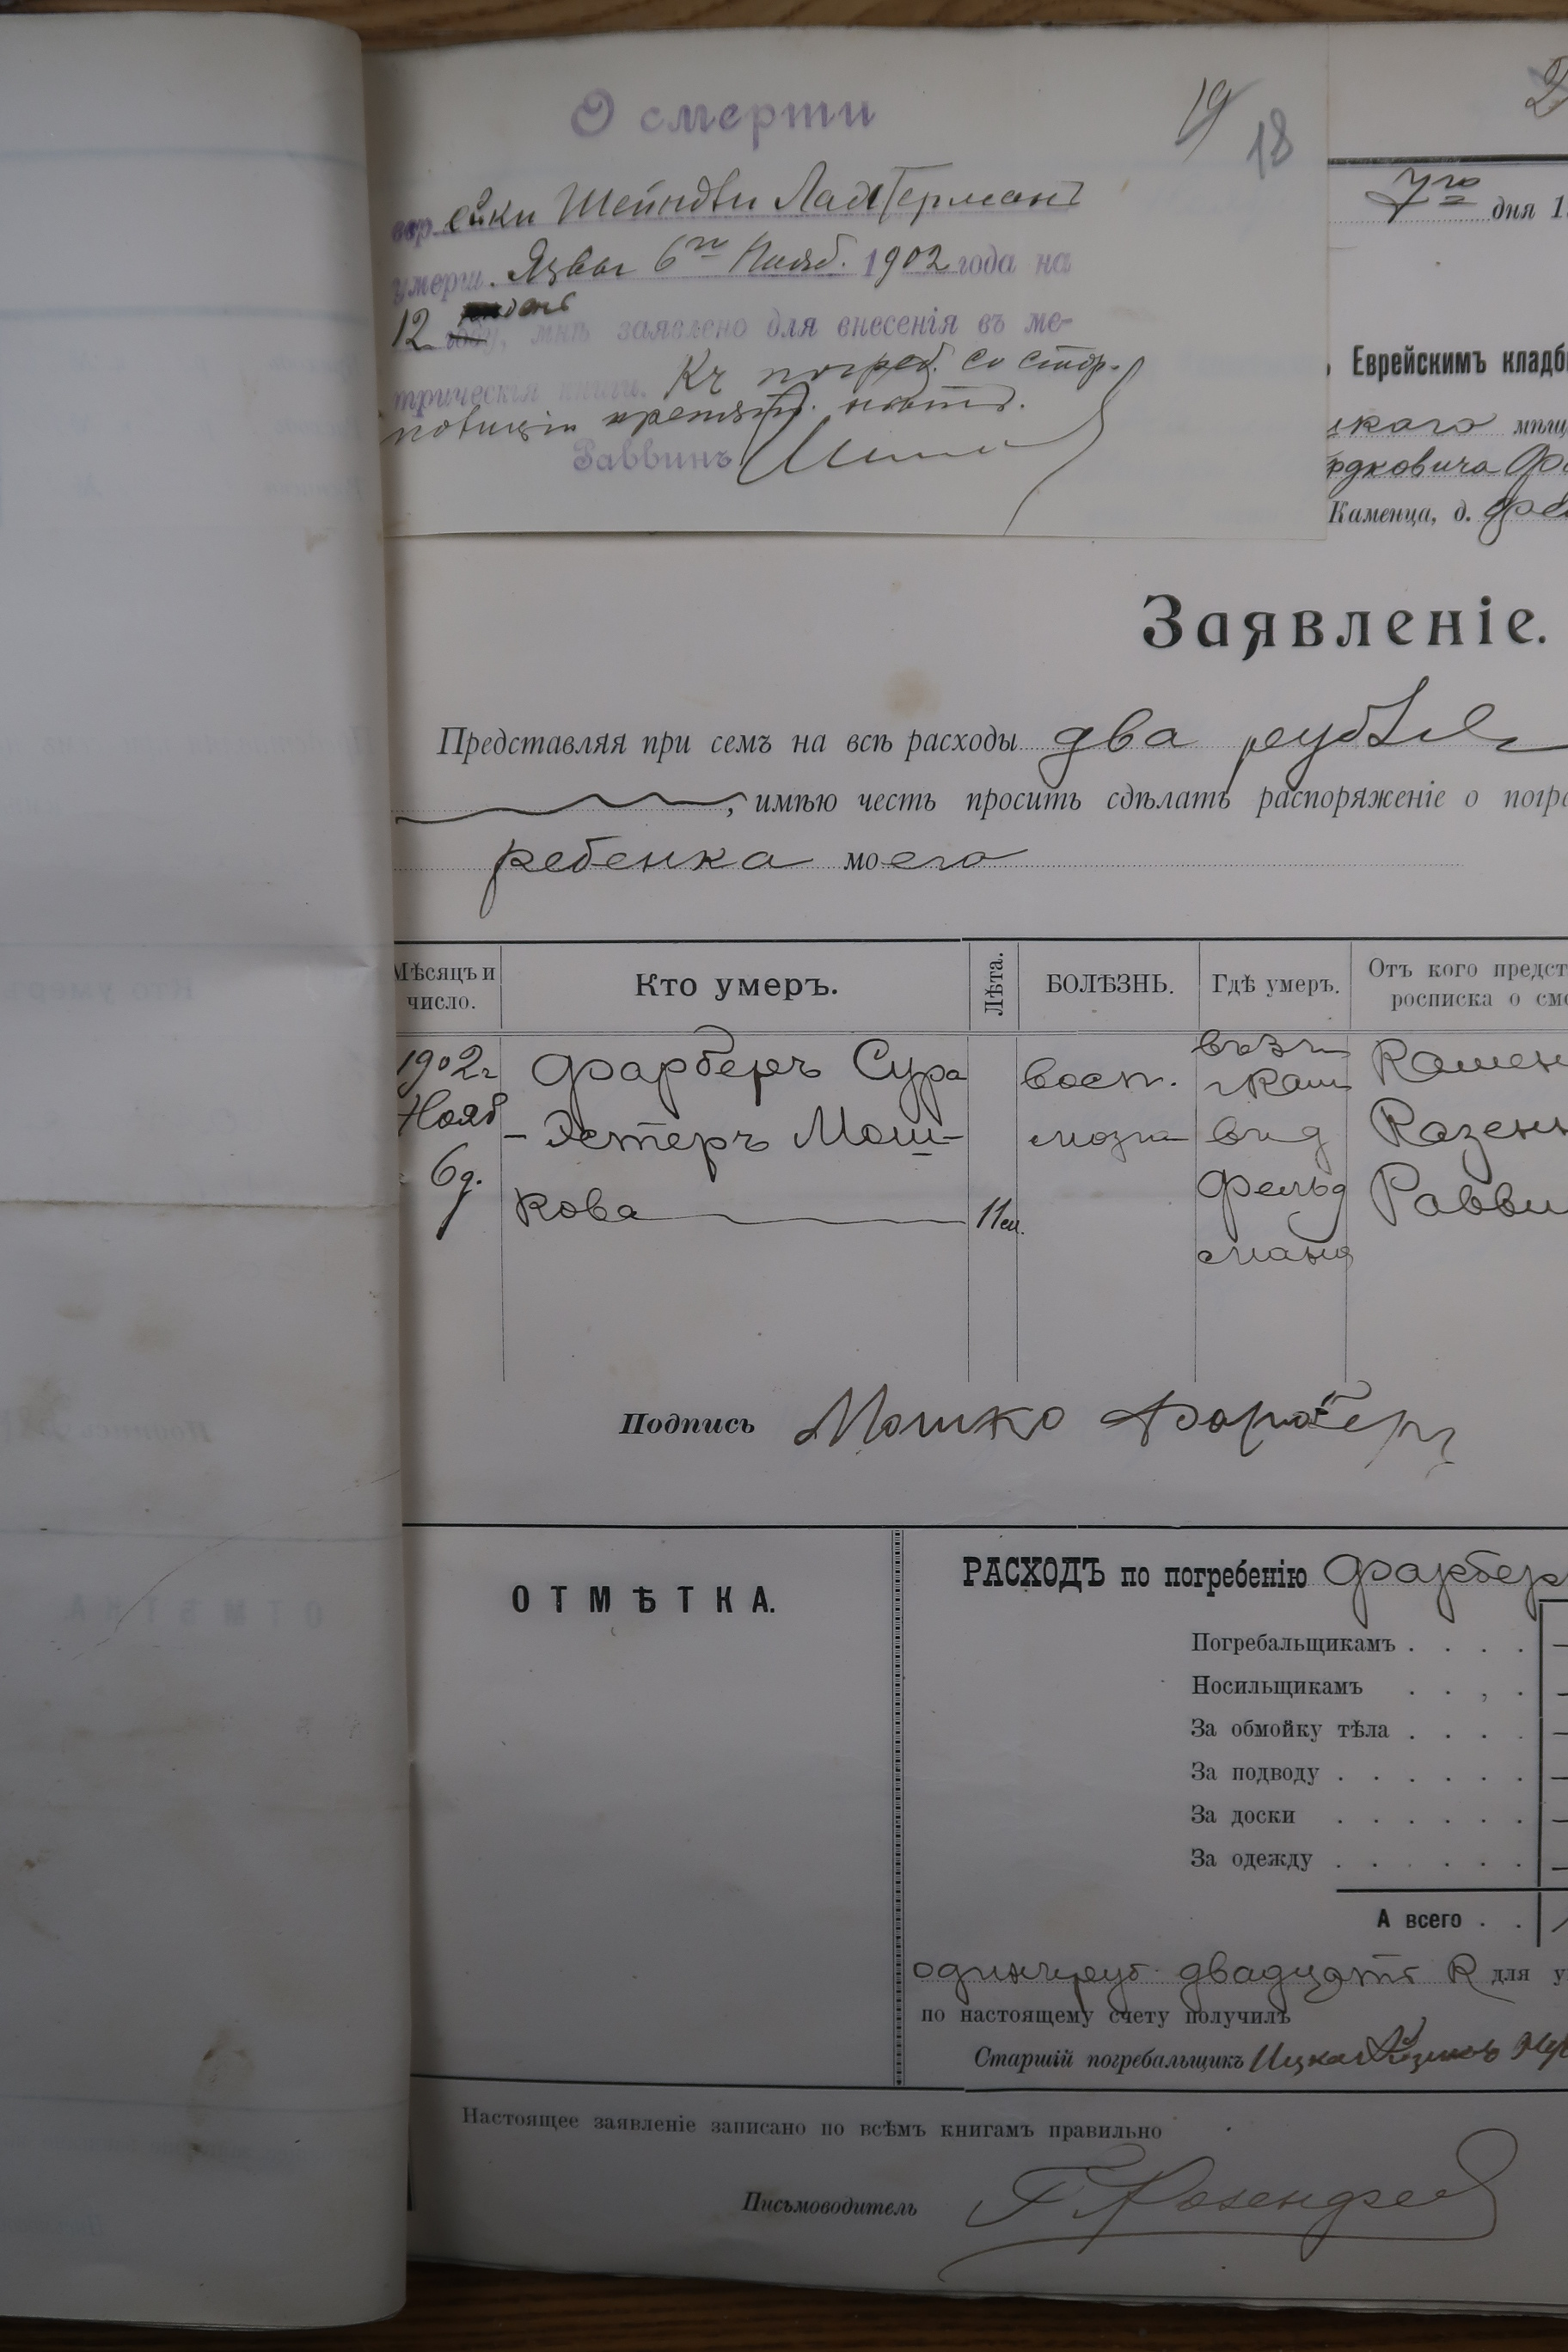 О смерти
19
18
евр. ейки Шейндли Ладерманъ
умерш. 6го Нояб. 1902 года на
12 году, день мнѣ заявлено для внесенія въ ме-
трическія книги. Къ погреб. со стор.
полиціи препятст. нѣтъ.
Раввинъ
2
7го дня 1
Еврейскимъ кладб
цкаго мѣщ
рдковича Фа
Каменца, д.
Заявленіе.
Представляя при семъ на всѣ расходы два рубля
, имѣю честь просить сдѣлать распоряженіе о погр
ребенка моего
Мѣсяцъ и число.
Кто умеръ.
Лѣта.
БОЛѢЗНЬ.
Гдѣ умеръ.
Отъ кого предст
росписка о сме
1902г
Нояб
6д.
Фарберъ Сура
-Эстеръ Мош-
кова
11м.
восп.
мозга
въ
г Кам
Фельд
мана
Камен
Казенн
Равви
Подпись Мошко Фарберъ
ОТМѢТКА.
РАСХОДЪ по погребенію Фарберъ
Погребальщикамъ . . . .
Носильщикамъ . . . .
За обмойку тѣла . . . .
За подводу . . . . . .
За доски . . . . . .
За одежду . . . . . .
А всего . .
одинъ руб. двадцать К для у
по настоящему счету получилъ
Старшій погребальщикъ Ицка
Настоящее заявленіе записано по всѣмъ книгамъ правильно
Письмоводитель Розенфел